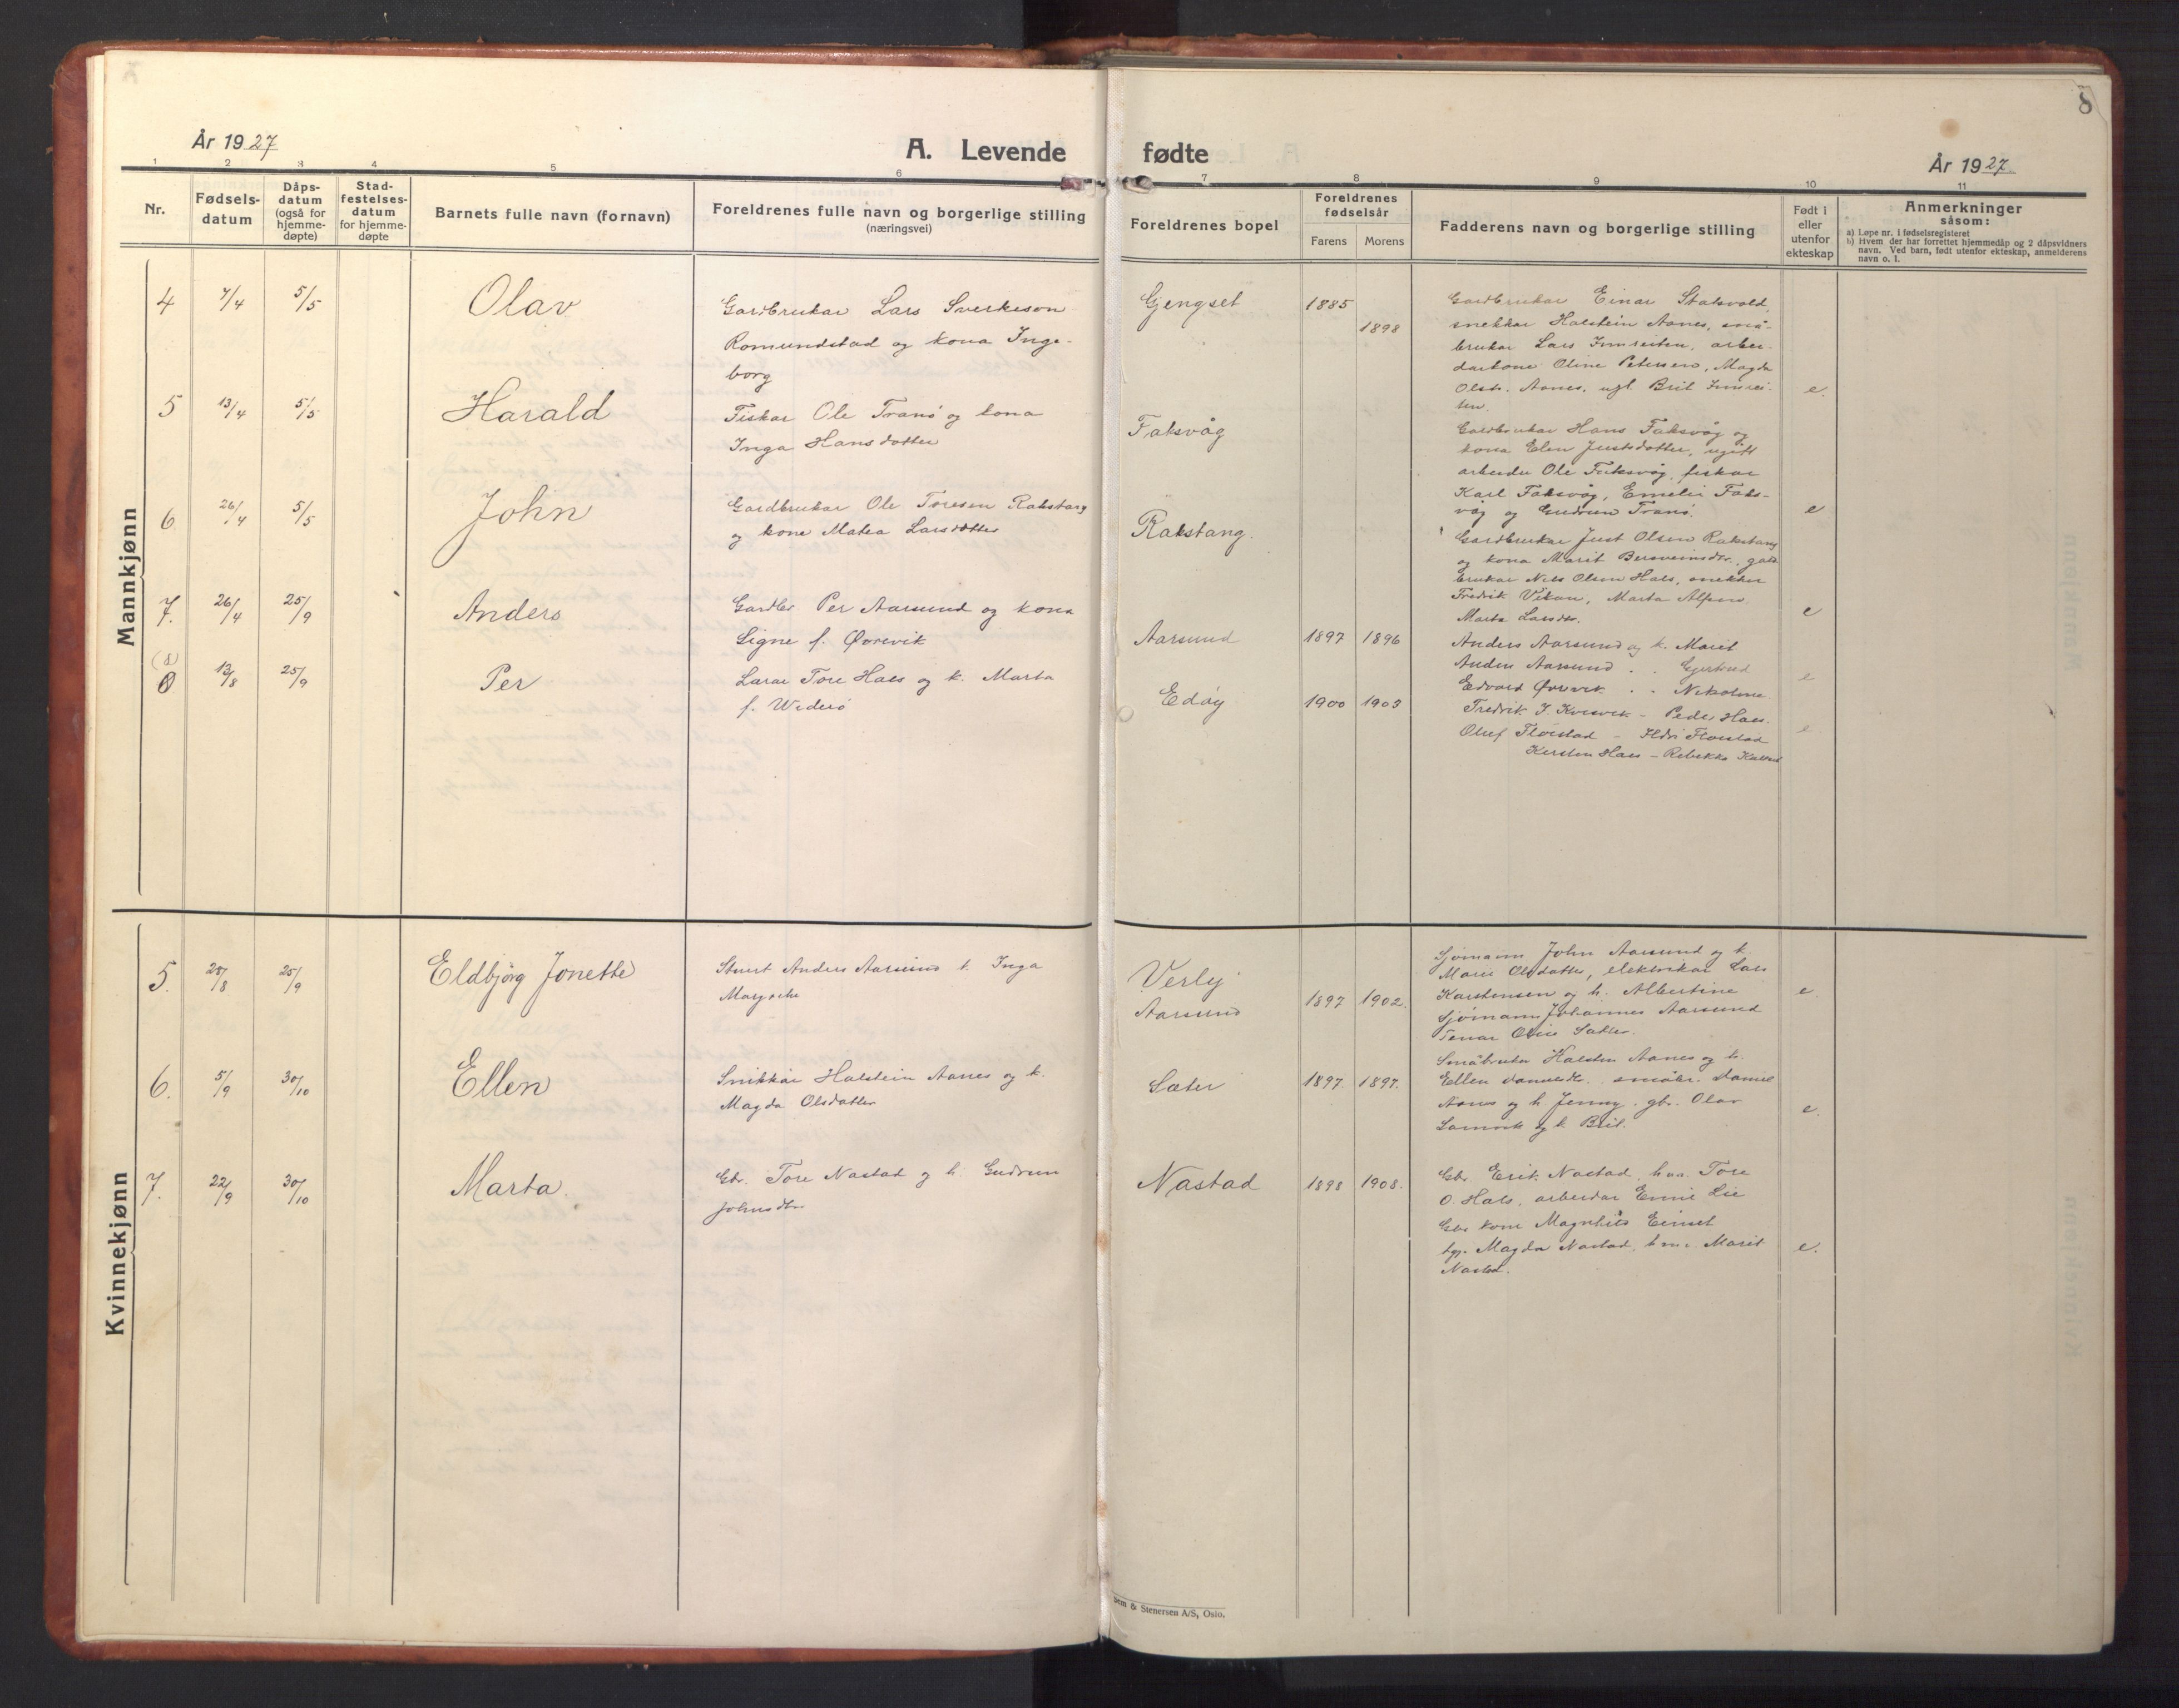 8
År 1927
A. Levende fødte
År 1927.
1 2 3 4 5 6 7 8 9 10 11
Nr.
Fødsels-
datum
Dåps-
datum
(også for
hjemme-
døpte)
Stad-
festelses-
datum
for hjemme-
døpte
Barnets fulle navn (fornavn)
Foreldrenes fulle navn og borgerlige stilling
(næringsvei)
Foreldrenes bopel
Foreldrenes
fødselsår
Farens Morens
Fadderens navn og borgerlige stilling
Født i
eller
utenfor
ekteskap
Anmerkninger
såsom:
a) Løpe nr. i fødselsregisteret
b) Hvem der har forrettet hjemmedåp og 2 dåpsvidners
navn. Ved barn, født utenfor ekteskap, anmelderens
navn o. l.
Mannkjønn
4 7/4 5/5 Olav
Gardbrukar Lars Sverkeson
Romundstad og kona Inge-
borg
Gjengset 1885
1898
Gardbrukar Einar Statsvold,
snekkar Halstein Aanes, små-
brukar Lars Innreiten, arbei-
darkone Oline Petersen, Magda
Olstr. Aanes, ugf. Brit Innrei-
ten.
e.
5 13/4 5/5 Harald
Fiskar Ole Tranø og kona
Inga Hansdotter
Faksvåg
Gardbrukar Hans Faksvåg og
kona Elen Justsdotter, ugift
arbeider Ole Faksvåg, fiskar
Karl Faksvåg, Emelie Faks-
våg og Gudrun Tranø.
e
6 26/4 5/5 John
Gardbrukar Ole Toresen Rakstang
og kone Matea Larsdotter
Rakstang.
Gardbrukar Just Olsen Rakstang
og kona Marit Bersveinsdtr., gard
brukar Nils Olsen Hals, snekker
Fredrik Vikan, Marta
Marta Larsdtr.
e
7. 26/4 25/9 Anders
Gardbr Per Aarsund og kona
Signe f. Ørevik
Aarsund 1897 1896
Anders Aarsund og k. Marit
Anders Aarsund . . Gjertrud
Edvard . . Nikoline
e
(8)
8 13/8 25/9 Per
Lærar Tore Hals og k. Marta
f. Wederø
Edøy 1900 1903
Fredrik J. Kvisvik - Peder Hals.
Oluf Floistad - Ildri Floistad
Kirsten Hals - Rebekka
e
Kvinnekjønn
5. 28/8 25/9 Eldbjørg Jonette
Stuert Anders Aarsund k. Inga
Margrethe
Verløy
Aarsund
1897 1902.
Sjømann John Aarsund og k.
Marie Olsdatter, elektrikar Lars
Karstensen og k. Albertine
Sjømann Johannes Aarsund
Tenar Oline Sæter.
e
6. 5/9 30/10 Ellen
Snikkar Halstein Aanes og k.
Magda Olsdatter
Sæter 1897. 1897.
Småbruker Halsten Aanes og k.
Ellen Danielsdtr. småbr. Daniel
Aanes og k Jenny. gbr. Olav
og k. Brit.
e.
7. 22/9 30/10 Marta.
Gbr. Tore Nastad og k. Gudrun
Johnsdtr
Nastad 1898 1908.
Gbr Erik Nastad, Tore
O. Hals, arbeidar Lie
Gbr kone Magnhild Einset
Magda Nastad, Marit
Nastad.
e.
& Stenersen A/S, Oslo.